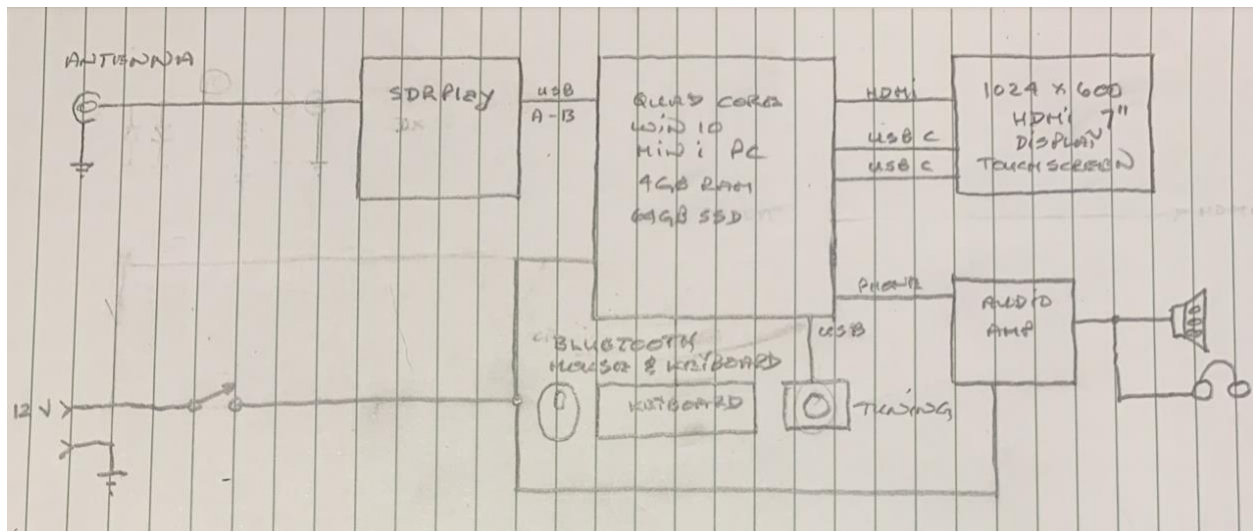 ANTENNA
SDRPlay
USB
A-B
QUAD CORE
WIN 10
MINI PC
4GB RAM
64GB SSD
HDMI
USB C
USB C
1024 x 600
HDMI 7"
DISPLAY
TOUCHSCREEN
PHONE
AUDIO
AMP
USB
BLUETOOTH
MOUSE & KEYBOARD
KEYBOARD
TUNING
12 V